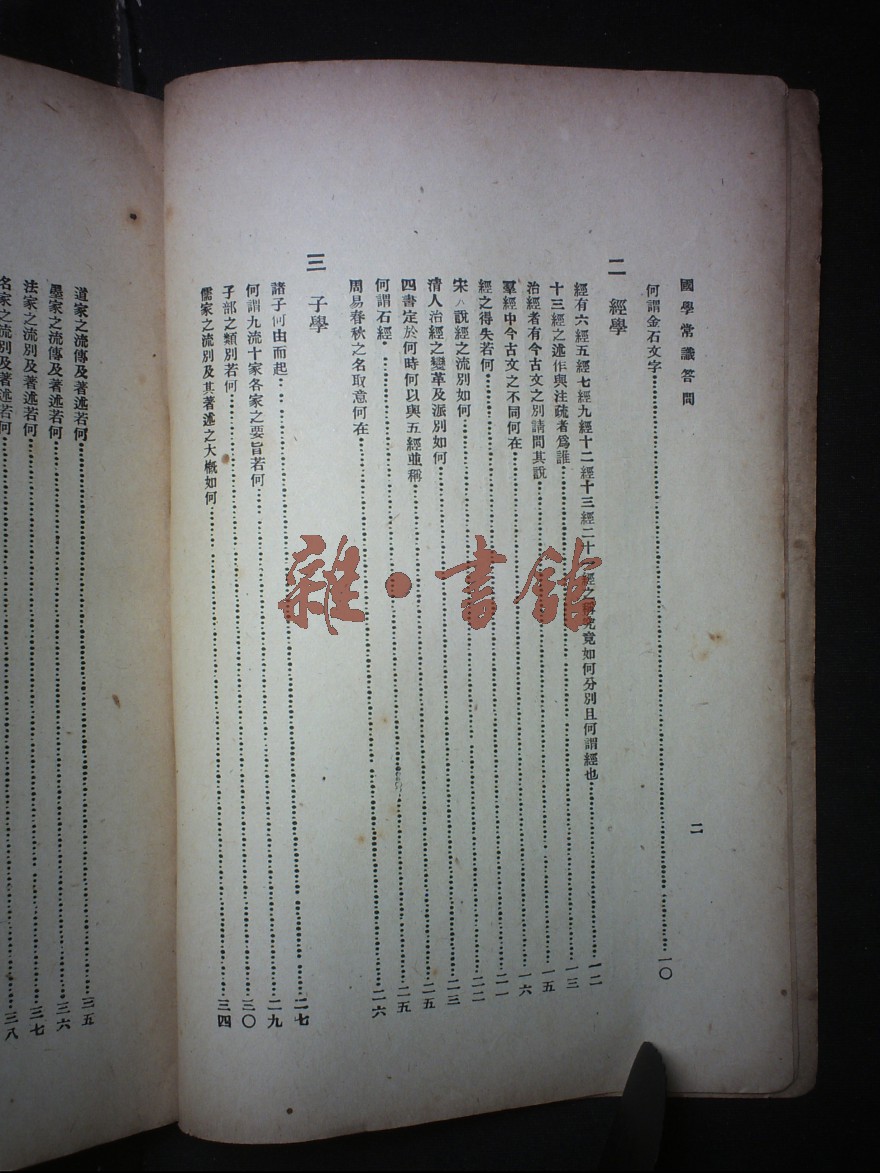 國學常識答問
二
何謂金石文字……一〇
二 經學
經有六經五經七經九經十二經十三經二十一經之稱究竟如何分別且何謂經也……一二
十三經之述作與注疏者爲誰……一三
治經者有今古文之別請問其說……一五
羣經中今古文之不同何在……一六
經之得失若何……二一
宋人說經之流別如何……二二
清人治經之變革及派別如何……二三
四書定於何時何以與五經並稱……二五
何謂石經……二五
周易春秋之名取意何在……二六
三 子學
諸子何由而起……二七
何謂九流十家各家之要旨若何……二九
子部之類別若何……三〇
儒家之流別及其著述之大概如何……三四
道家之流傳及著述若何……三五
墨家之流傳及著述若何……三六
法家之流別及著述若何……三七
名家之流別及著述若何……三八
雜·書館